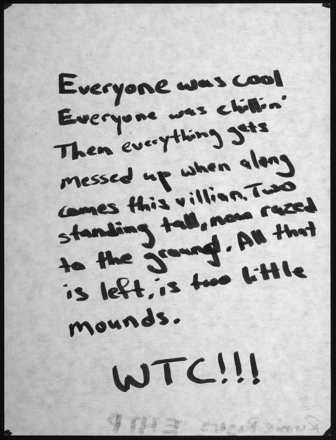 Everyone was cool
Everyone was chillin'
Then everything gets
messed up when along
comes this villian. Two
standing tall, now razed
to the ground. All that
is left, is two little
mounds.
WTC!!!